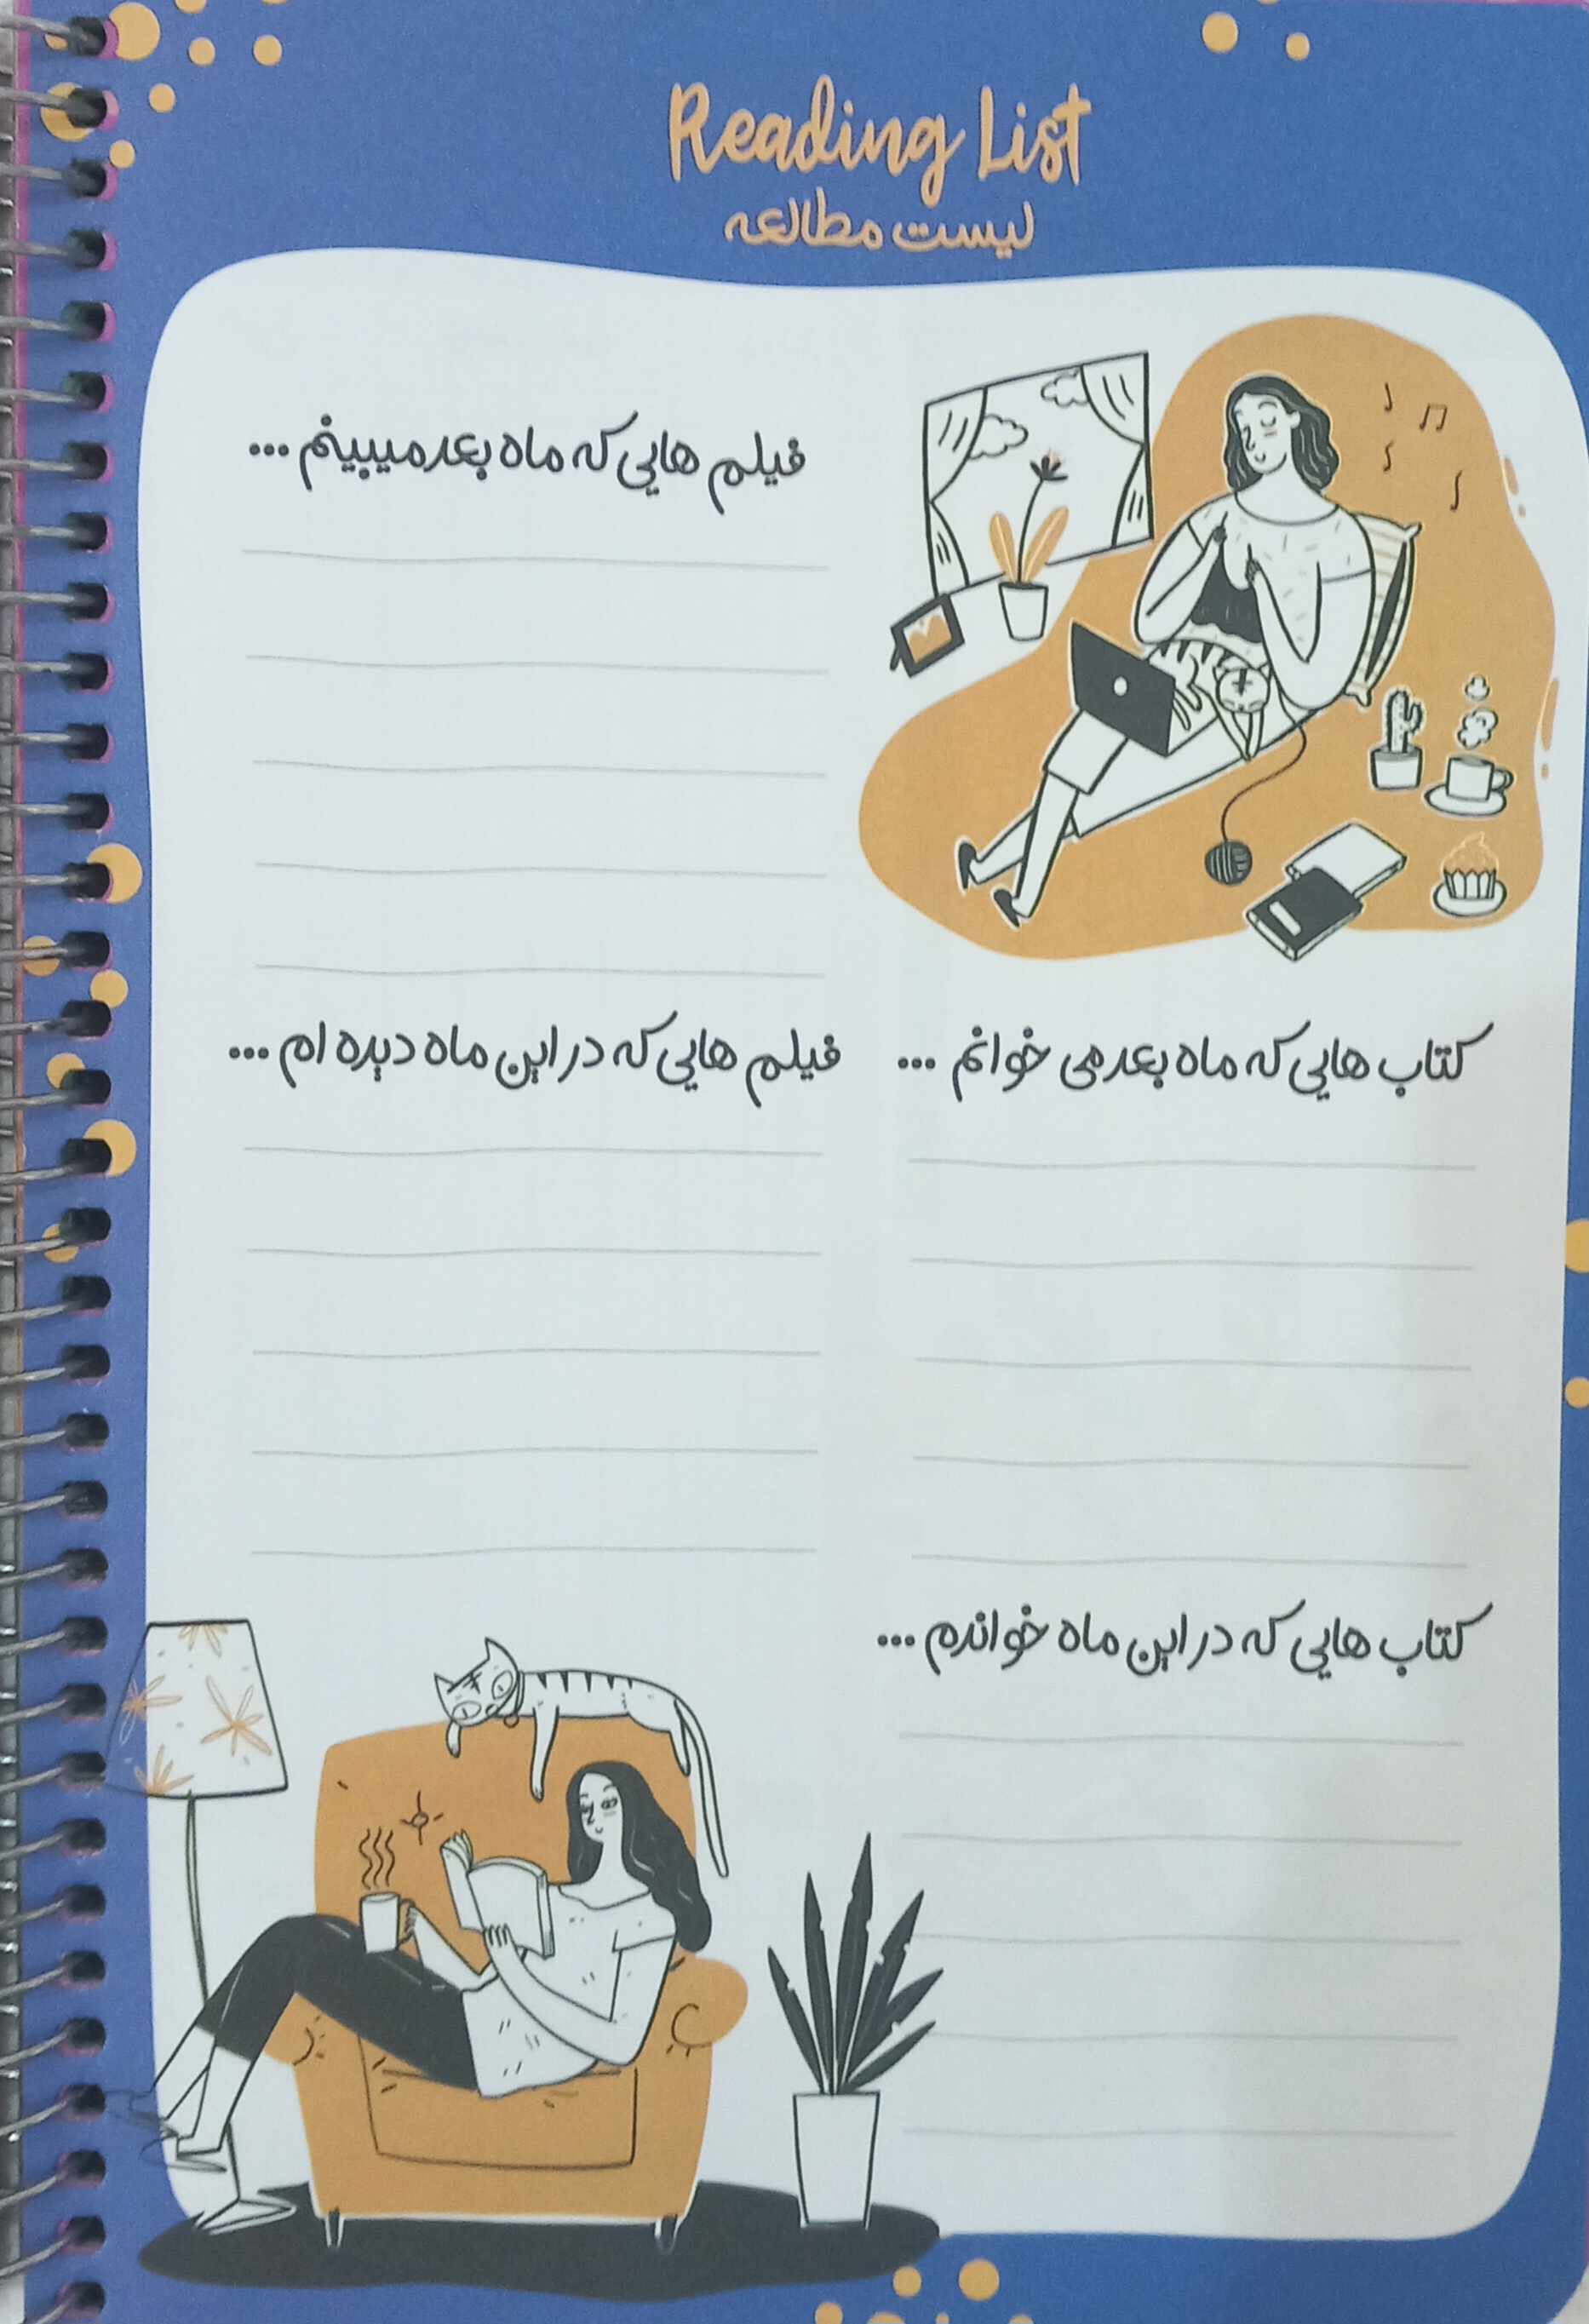 Reading List
لیست مطالعه
فیلم هایی که ماه بعد میبینم ...
کتاب هایی که ماه بعد می خوانم ...
فیلم هایی که در این ماه دیده ام ...
کتاب هایی که در این ماه خواندم ...